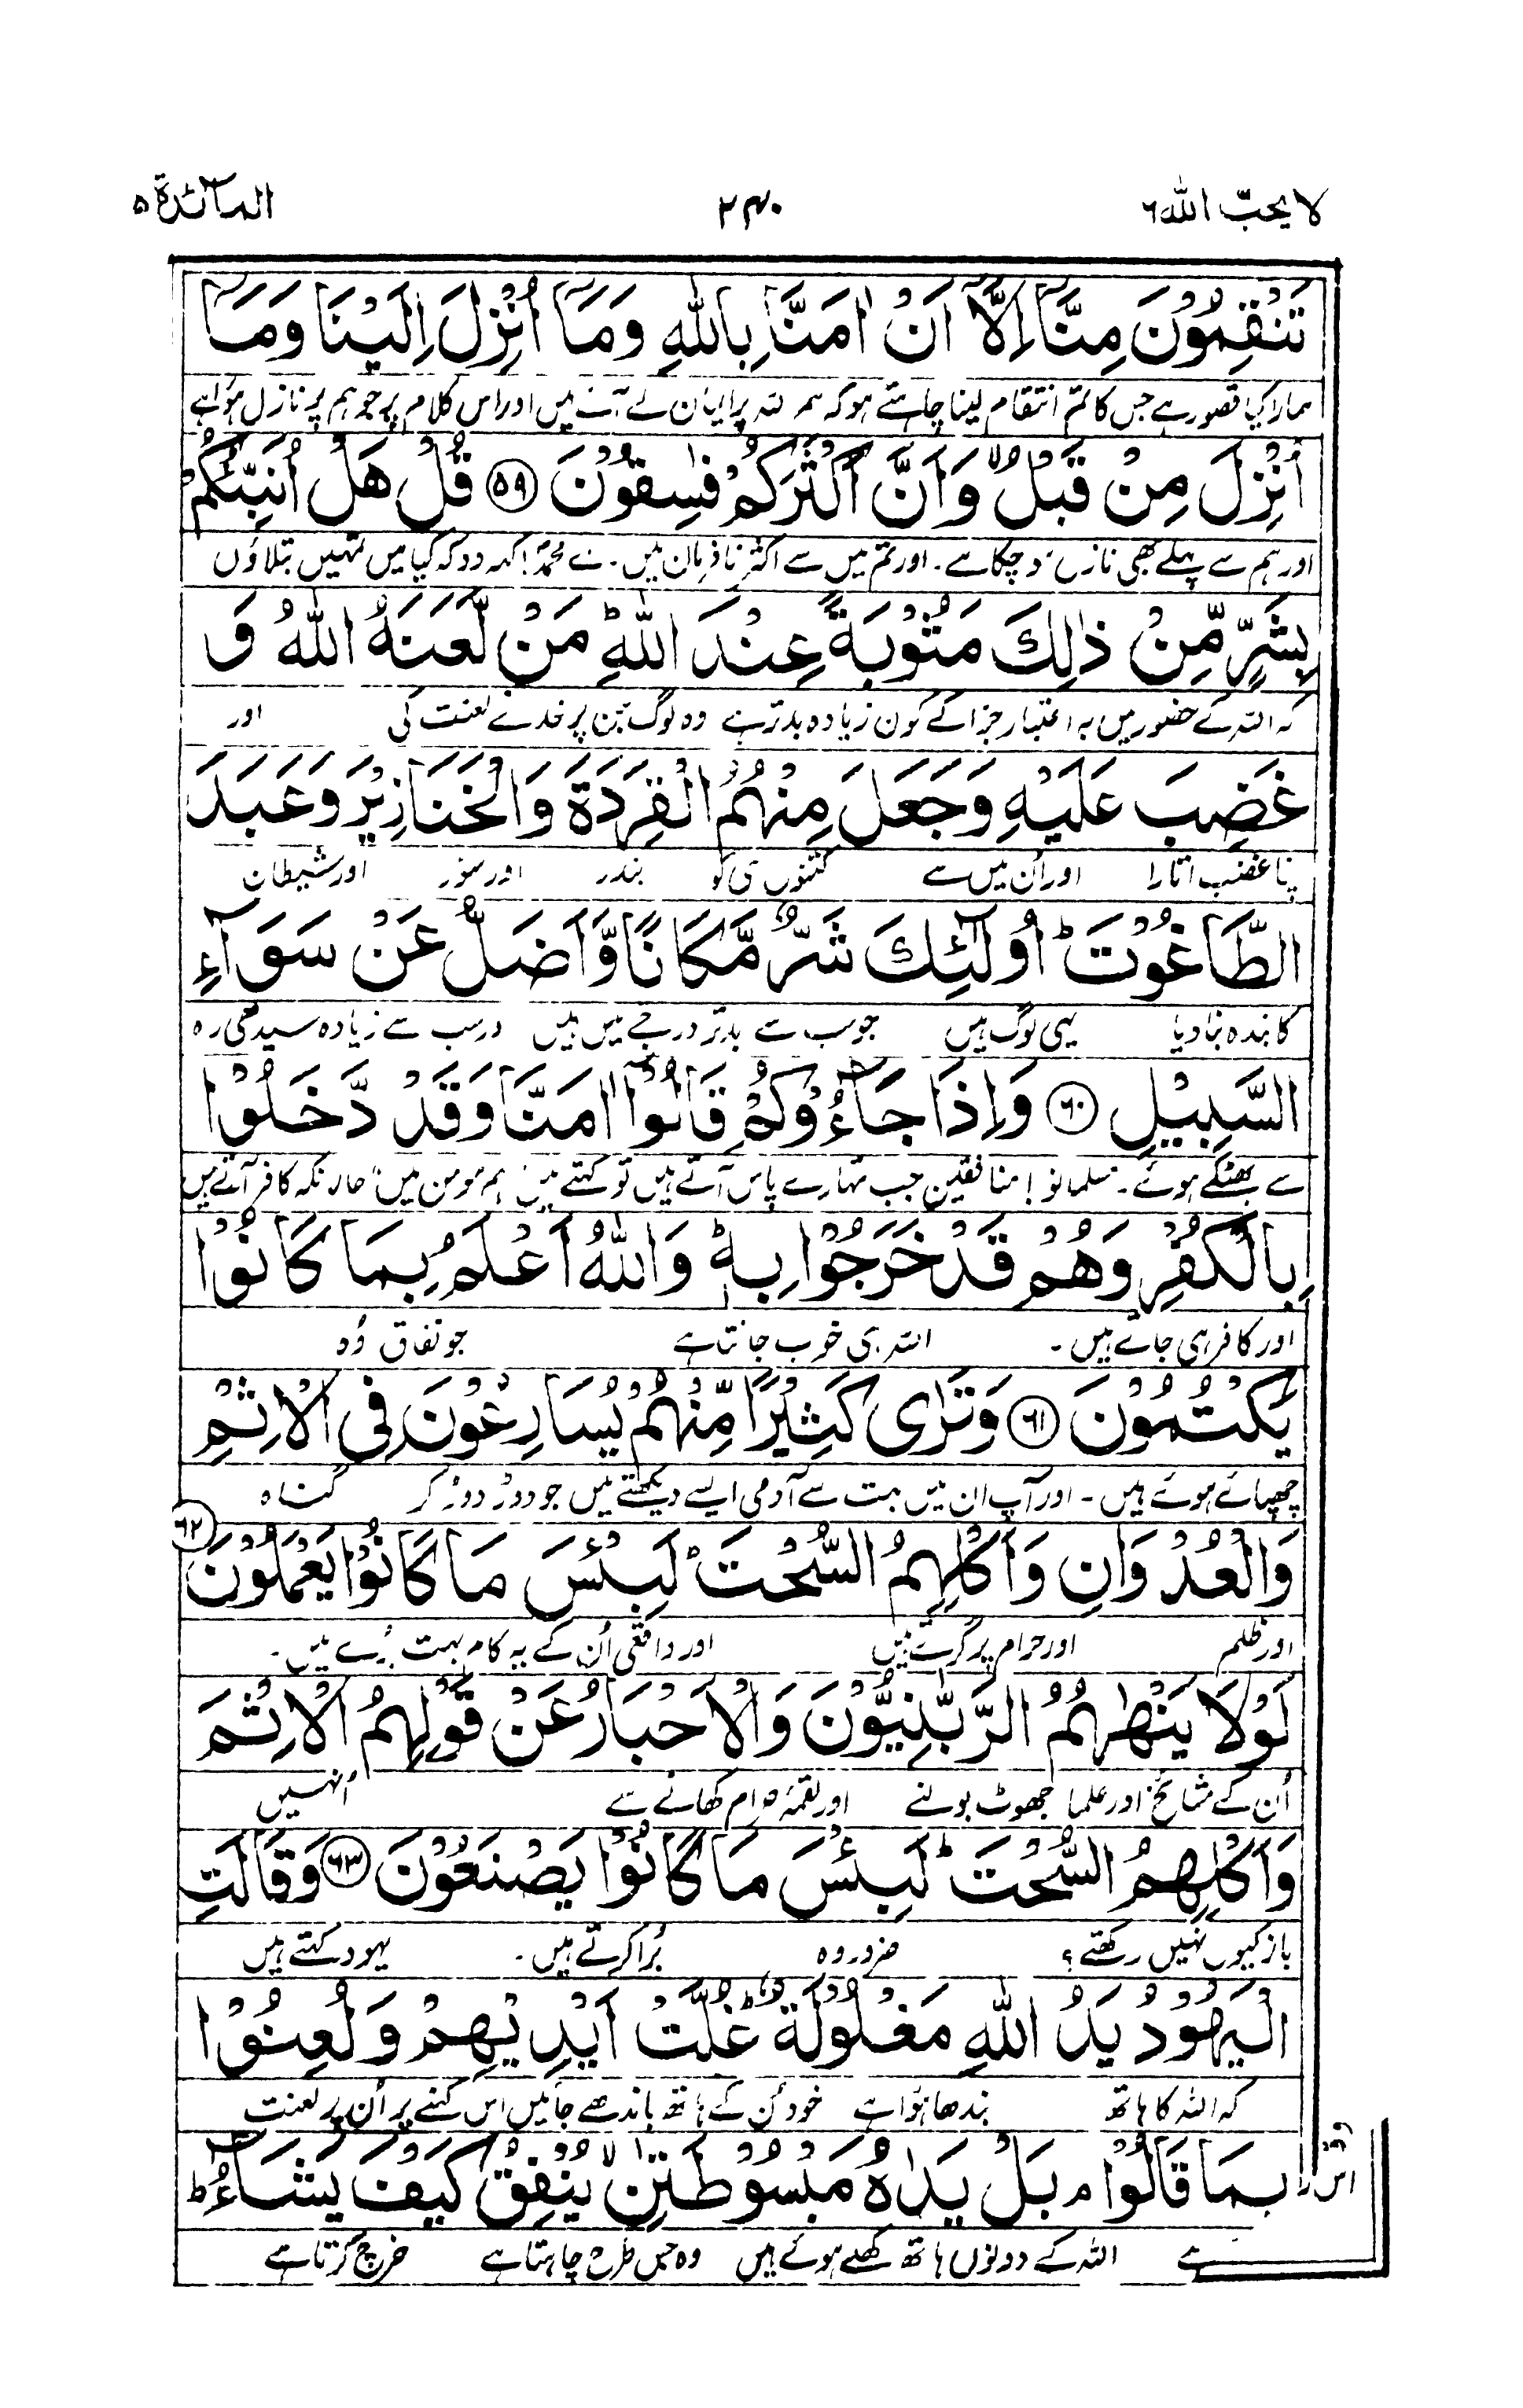 لا یحبّ اللہ ۶
۲۴۰
المآئدۃ ۵
تَنْقِمُوْنَ مِنَّاۤ اِلَّاۤ اَنْ اٰمَنَّا بِاللّٰهِ وَمَاۤ اُنْزِلَ اِلَیْنَا وَمَاۤ
ہمارا کیا قصور ہے جس کا تم انتقام لینا چاہتے ہو کہ ہم اللہ پر ایمان لے آئے ہیں اور اس کلام پر جو ہم پر نازل ہوا ہے
اُنْزِلَ مِنْ قَبْلُ ۙ وَاَنَّ اَكْثَرَكُمْ فٰسِقُوْنَ ﴿۵۹﴾ قُلْ هَلْ اُنَبِّئُكُمْ
اور ہم سے پہلے بھی نازل ہو چکا ہے۔ اور تم میں سے اکثر نافرمان ہیں۔ اے محمدؐ! کہہ دو کہ کیا میں تمہیں بتلاؤں
بِشَرٍّ مِّنْ ذٰلِكَ مَثُوْبَةً عِنْدَ اللّٰهِ ؕ مَنْ لَّعَنَهُ اللّٰهُ وَ
کہ اللہ کے حضور میں بہ اعتبار جزا کے کون زیادہ بدتر ہے وہ لوگ جن پر خدا نے لعنت کی اور
غَضِبَ عَلَیْهِ وَجَعَلَ مِنْهُمُ الْقِرَدَةَ وَالْخَنَازِیْرَ وَعَبَدَ
اپنا غضب اتارا اور اُن میں سے کتنوں ہی کو بندر اور سؤر اور شیطان
الطَّاغُوْتَ ؕ اُولٰٓئِكَ شَرٌّ مَّكَانًا وَّاَضَلُّ عَنْ سَوَآءِ
کا بندہ بنا دیا یہی لوگ ہیں جو سب سے بدتر درجے میں ہیں اور سب سے زیادہ سیدھی راہ
السَّبِیْلِ ﴿۶۰﴾ وَاِذَا جَآءُوْكُمْ قَالُوْۤا اٰمَنَّا وَقَدْ دَّخَلُوْا
سے بھٹکے ہوئے۔ مسلمانو! منافقین جب تمہارے پاس آتے ہیں تو کہتے ہیں ہم مومن ہیں حالانکہ کافر آتے ہیں
بِالْكُفْرِ وَهُمْ قَدْ خَرَجُوْا بِهٖ ؕ وَاللّٰهُ اَعْلَمُ بِمَا كَانُوْا
اور کافر ہی جاتے ہیں۔ اللہ ہی خوب جانتا ہے جو نفاق وُہ
یَكْتُمُوْنَ ﴿۶۱﴾ وَتَرٰی كَثِیْرًا مِّنْهُمْ یُسَارِعُوْنَ فِی الْاِثْمِ
چھپائے ہوئے ہیں۔ اور آپ ان میں بہت سے آدمی ایسے دیکھتے ہیں جو دوڑ دوڑ کر گناہ
وَالْعُدْوَانِ وَاَكْلِهِمُ السُّحْتَ ؕ لَبِئْسَ مَا كَانُوْا یَعْمَلُوْنَ ﴿۶۲﴾
اور ظلم اور حرام پر گرتے ہیں اور واقعی اُن کے یہ کام بہت بُرے ہیں۔
لَوْلَا یَنْهٰىهُمُ الرَّبّٰنِیُّوْنَ وَالْاَحْبَارُ عَنْ قَوْلِهِمُ الْاِثْمَ
اُن کے مشائخ اور علما جھوٹ بولنے اور لقمۂ حرام کھانے سے اُنہیں
وَاَكْلِهِمُ السُّحْتَ ؕ لَبِئْسَ مَا كَانُوْا یَصْنَعُوْنَ ﴿۶۳﴾ وَقَالَتِ
باز کیوں نہیں رکھتے؟ ضرور وہ بُرا کرتے ہیں۔ یہود کہتے ہیں
الْیَهُوْدُ یَدُ اللّٰهِ مَغْلُوْلَةٌ ؕ غُلَّتْ اَیْدِیْهِمْ وَلُعِنُوْا
کہ اللہ کا ہاتھ بندھا ہوا ہے خود اُن کے ہاتھ باندھے جائیں اس کہنے پر اُن پر لعنت
بِمَا قَالُوْا ۘ بَلْ یَدٰهُ مَبْسُوْطَتٰنِ ۙ یُنْفِقُ كَیْفَ یَشَآءُ ؕ
ہے اللہ کے دونوں ہاتھ کھلے ہوئے ہیں وہ جس طرح چاہتا ہے خرچ کرتا ہے